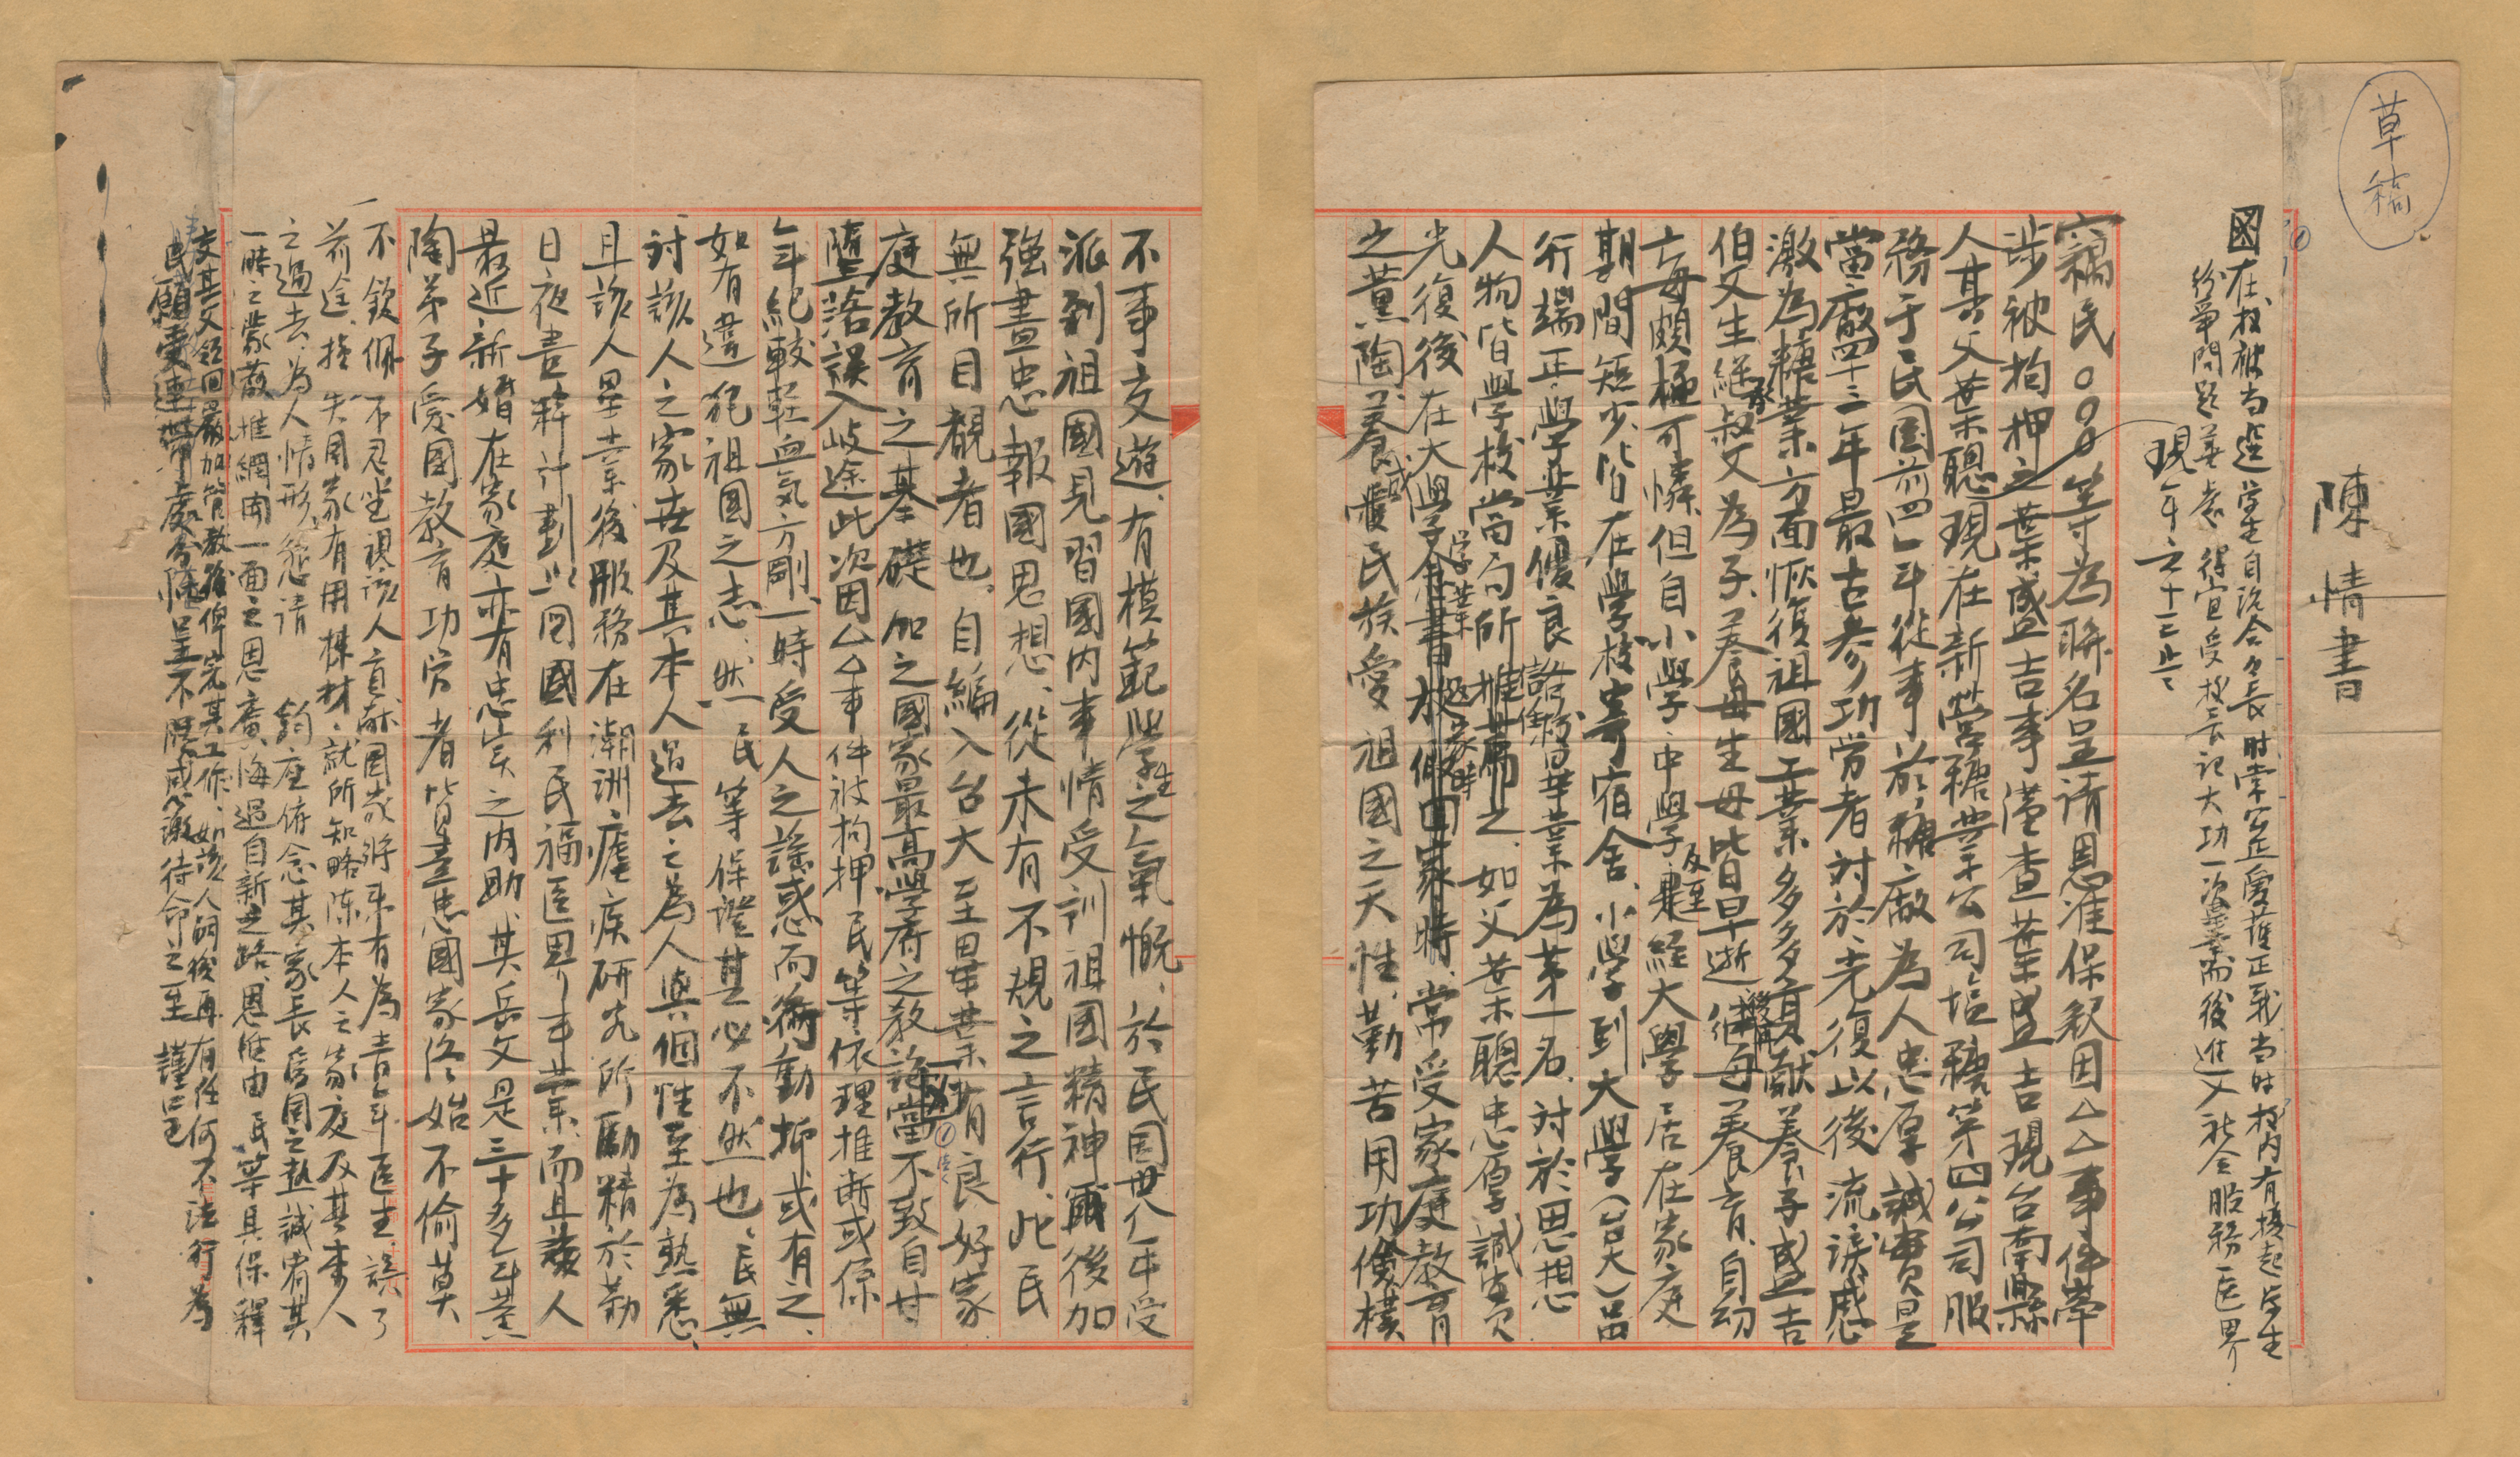 草稿
陳情書
國在校被当選学生自治会々長时常宣愛護正義当时校内有揆起学生
紛爭問題善處得宜受校長記大功一次畢業而後進入社会服務医界
現年二十二歲
竊民○○○等為聯名呈請恩准保釈因△△事件牽
涉被拘押之葉盛吉事谨查葉盛吉現台南縣
人其父葉聰現在新營糖業公司塩糖第四公司服
務于民国前四年從事於糖廠為人忠厚誠實是
當廠四十三年最古参功勞者対於光復以後流淚感
激為糖業方面恢復祖國工業多多貢献養子盛吉
伯父生継承叔父為子養母生母皆早逝後再継母養育自幼
亡母頗極可憐但自小學中學及至経大學居在家庭
期間短少皆在學校寄宿舍小學到大學(台大)品
行端正學業優良詣修畢業為第一名対於思想
人物皆學校當局所推薦之如父葉聰忠厚誠實
光復後在大學学業返家時常受家庭教育
之薰陶養成愛民族愛祖國之天性勤苦用功儉樸
不事交遊有模範學生之氣慨於民国卅八年受
派到祖國見習國内事情受訓祖國精神爾後加
強盡忠報國思想從未有不規之言行此民
無所目覩者也自編入台大至畢業有良好家
庭教育之基礎加之國家最高學府之教誨當不致自甘
墮落誤入岐途此次因△△事件被拘押民等依理推断或係
年紀較軽血気方剛一時受人之誘惑而衝動抑或有之
如有違犯祖國之志然民等保證其必不然也民無
討該人之家世及其本人過去之為人與個性至為熟悉
且該人畢業後服務在潮洲瘧疾研究所勵精於勤
日夜書釋計劃以図國利民福医界事業而且該人
最近新婚在家庭亦有忠実之内助其岳父是三十多年薰
陶弟子愛国教育功労者皆盡忠國家终始不偷莫
不欽佩不忍坐視該人貢献国家将来有為青年医生誤了
前途接失国家有用棟材就所知略陳本人之家庭及其本人
之過去為人情形懇請 鈞座俯念其家長為国之熱誠宥其
一時之蒙蔽推網開一面之恩廣悔過自新之路恩准由民等具保釋
交其父領回嚴加管教後俾完其工作如該人嗣後再有任何不法行為
民願受連帶處分陳呈不勝感激待命之至 謹呈